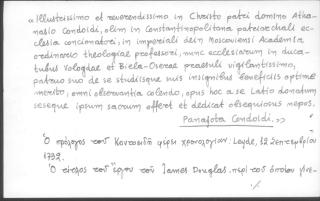 «Illustrissimo et reverendissimo in Christo patri domino Atha-
nasio Condoidi, olim in Constantinopolitana patriarchali ec-
clesia concionatori, in imperiali dein Moscoviensi Academia
ordinario theologiae professori, nunc ecclesiarum in duca-
tubus Vologdae et Biela-Oserae praesuli vigilantissimo,
patruo suo de se studiisque suis insignibus beneficiis optime
merito, omni observantia colendo, opus hoc a se Latio donatum
seseque ipsum sacrum offert et dedicat obsequiosus nepos.
Panajota Condoidi.»
Ὁ πρόλογος τοῦ Κονταοιδῆ φέρει χρονολογίαν: Leyde, 12 Σεπτεμβρίου
1732.
Ὁ τίτλος τοῦ ἔργου τοῦ James Douglas. περὶ τοῦ ὁποίου γίνε-